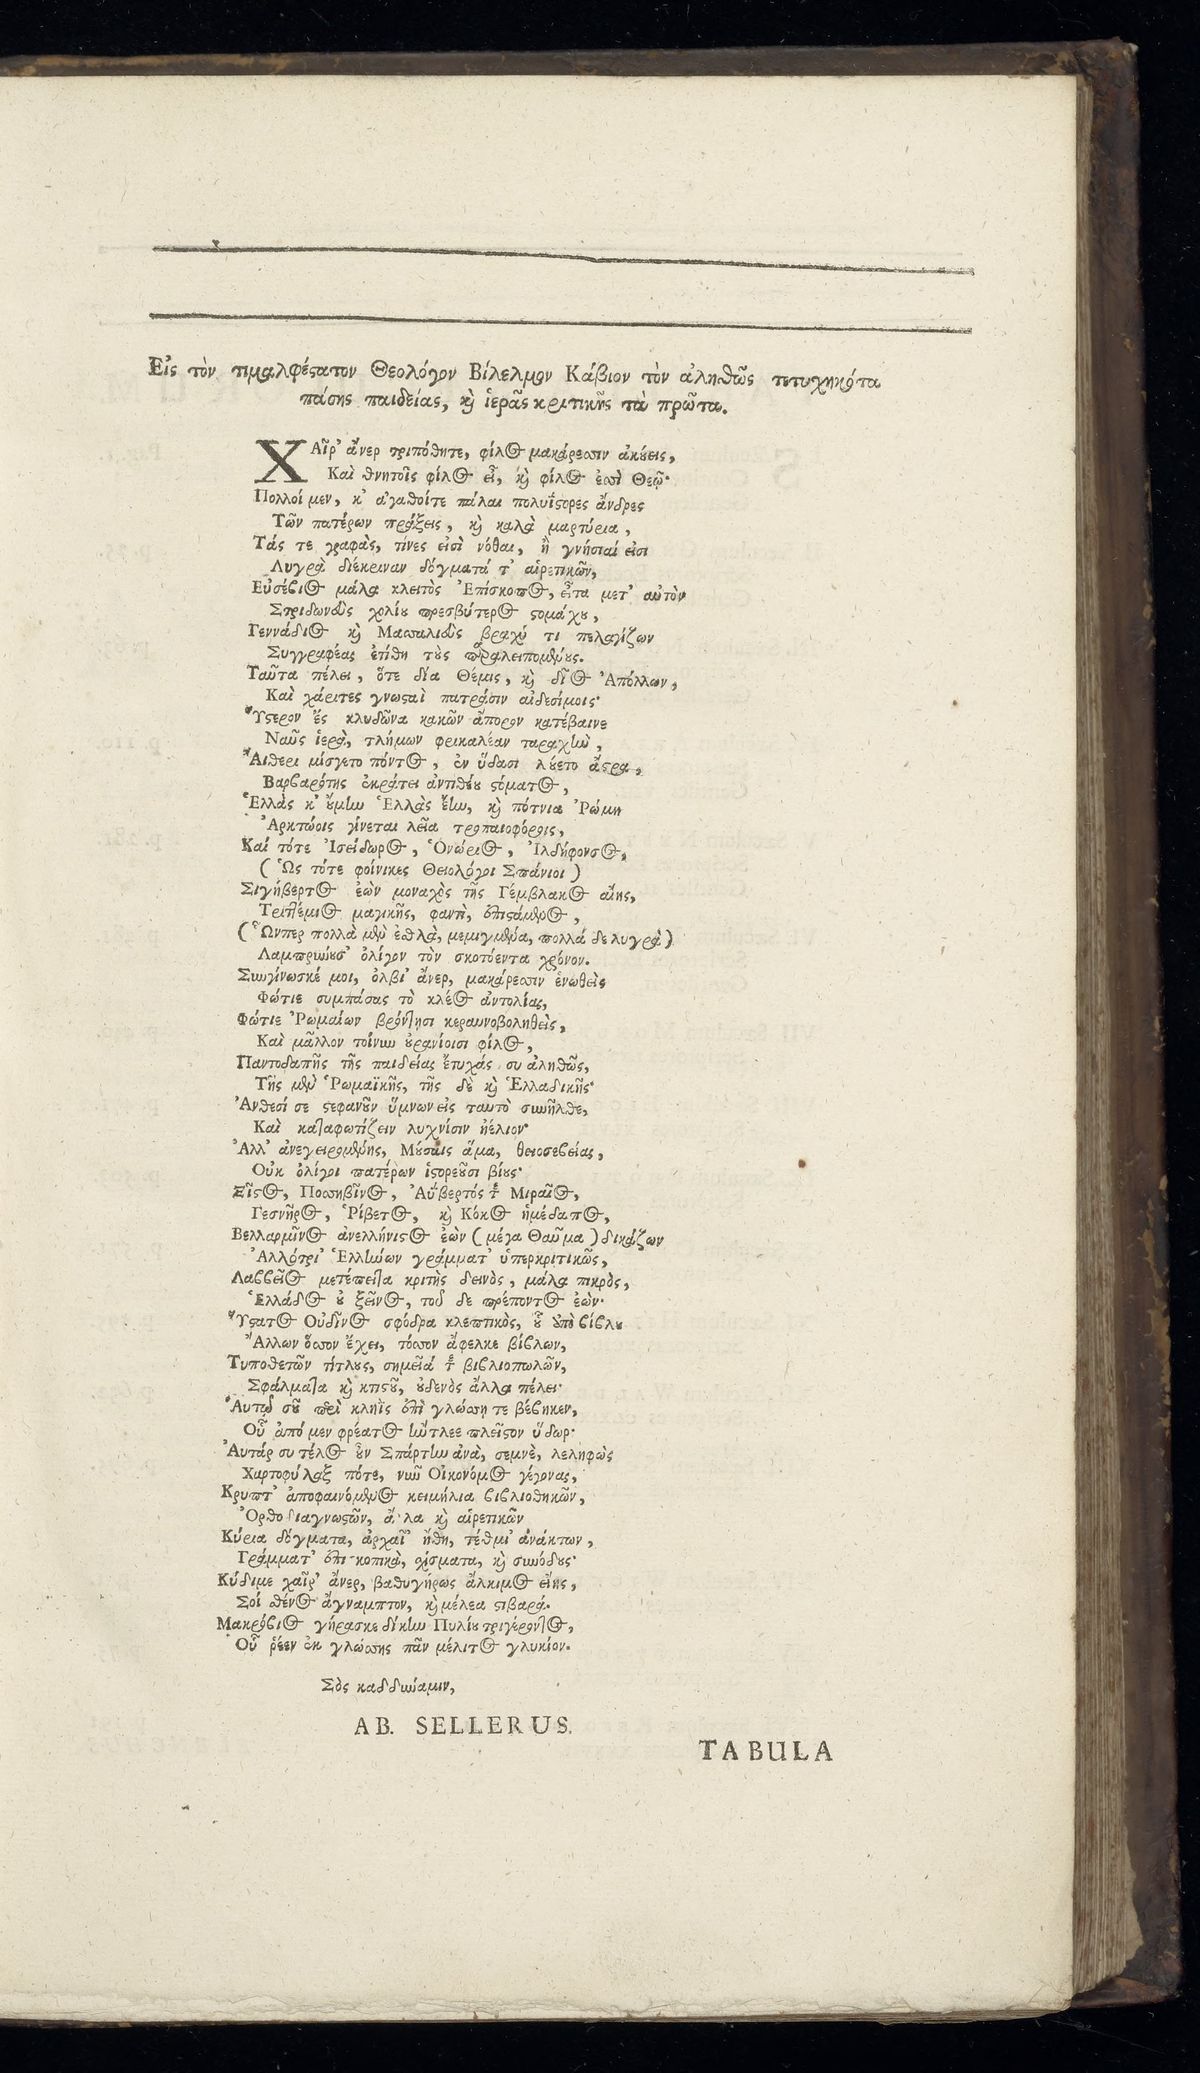 Εἰς τὸν τιμαλφέςατον Θεολόγον Βίλελμον Κάβιον τὸν ἀληθῶς τετυχηκότα
πάσης παιδείας, κὶ ἱερᾶς κριτικῆς τὰ πρῶτα.
ΧΑῖρ' ἄνερ τριπόθητε, φίλΘ μακάρεσσιν ἀκούεις,
Καὶ θνητοῖς φίλΘ εἶ, κὶ φίλΘ ἐσσὶ Θεῷ·
Πολλοί μεν, κ' ἀγαθοίτε πάλαι πολυΐςορες ἄνδρες
Τῶν πατέρων πράξεις, κὶ καλὰ μαρτύρια,
Τάς τε γραφὰς, τίνες εἰσὶ νόθαι, ἢ γνήσιαί εἰσι
Λυγρὰ διέκριναν δόγματά τ' αἱρετικῶν,
ΕὐσέβιΘ μάλα κλειτὸς ἘπίσκοπΘ, εἶτα μετ' αὐτὸν
Στριδωνεὺς χολίου πρεσβύτερΘ ςομάχου,
ΓεννάδιΘ κὶ Μασσαλιεὺς βραχύ τι πελαγίζων
Συγγραφέας ἐτίθη τοὺς παραλειπομένους.
Ταῦτα πέλει, ὅτε δῖα Θέμις, κὶ δῖΘ Ἀπόλλων,
Καὶ χάριτες γνωςαὶ πατράσιν αἰδεσίμοις·
Ὕςερον ἐς κλυδῶνα κακῶν ἄπορον κατέβαινε
Ναῦς ἱερὰ, τλήμων φρικαλέαν ταραχὴν,
Ἄιθερι μίσγετο πόντΘ, ἐν ὕδασι λύετο ἄςρα,
Βαρβαρότης ἐκράτει ἀντιθέου ςόματΘ,
Ἑλλὰς κ' οὔμην Ἑλλὰς ἔην, κὶ πότνια Ῥώμη
Ἀρκτώοις γίνεται λεῖα τροπαιοφόροις,
Καί τότε ἸσείδωρΘ, ὉνώριΘ, ἸλδήφονσΘ,
( Ὡς τότε φοίνικες Θειολόγοι Σπάνιοι )
ΣιγήβερτΘ ἐὼν μοναχὸς τῆς ΓέμβλακΘ αἴης,
ΤριθέμιΘ μαγικῆς, φαντὶ, ἐπιςάμενΘ,
( Ὧνπερ πολλὰ μὲν ἐσθλὰ, μεμιγμένα, πολλά δε λυγρὰ )
Λαμπρύνουσ' ὀλίγον τὸν σκοτόεντα χρόνον.
Συγγίνωσκέ μοι, ὄλβι' ἄνερ, μακάρεσσιν ἑνωθεὶς
Φώτιε συμπάσας τὸ κλέΘ ἀντολίας,
Φώτιε Ῥωμαίων βρόντησι κεραυνοβοληθεὶς,
Καὶ μᾶλλον τοίνυν οὐρανίοισι φίλΘ,
Παντοδαπῆς τῆς παιδείας ἔτυχάς συ ἀληθῶς,
Τῆς μὲν Ῥωμαϊκῆς, τῆς δὲ κὶ Ἑλλαδικῆς·
Ἄνθεσί σε ςεφανοῦν ὕμνων εἰς ταυτὸ συνῆλθε,
Καὶ καταφωτίζειν λυχνίσιν ἠέλιον·
Ἀλλ' ἀνεγειρομένης, Μούσαις ἅμα, θειοσεβείας,
Οὐκ ὀλίγοι πατέρων ἱςορεῦσι βίους·
ΣῖςΘ, ΠοσσηβῖνΘ, Αὔβερτός τε ΜιραῖΘ,
ΓεσνῆρΘ, ῬίβετΘ, κὶ ΚόκΘ ἡμέδαπΘ,
ΒελλαρμῖνΘ ἀνελλήνιςΘ ἐὼν ( μέγα Θαῦμα ) δικάζων
Ἀλλότρι' Ἑλλήνων γράμματ' ὑπερκριτικῶς,
ΛαββεῖΘ μετέπειτα κριτὴς δεινὸς, μάλα πικρὸς,
ἙλλάδΘ οὐ ξεῖνΘ, τοῦ δε πρέποντΘ ἐὼν·
ὝςατΘ ΟὐδῖνΘ σφόδρα κλεπτικὸς, οὗ ὑπὸ βίβλου
Ἄλλων ὅσσον ἔχει, τόσσον ἄφελκε βίβλων,
Τυποθετῶν τίτλους, σημεῖά τε βιβλιοπωλῶν,
Σφάλματα κὶ κτισοῦ, οὐδενὸς ἄλλα πέλει·
Ἀυτοῦ σοῦ περὶ κληῒς ἐπὶ γλώσσῃ τε βέβηκεν,
Οὗ ἀπό μεν φρέατΘ ἤντλεε πλεῖςον ὕδωρ·
Ἀυτάρ συ τέλΘ οὖν Σπάρτην ἀνὰ, σεμνὲ, λεληφὼς
Χαρτοφύλαξ πότε, νυνῦ ΟἰκονόμΘ γέγονας,
Κρυπτ' ἀποφαινόμενΘ κειμήλια βιβλιοθηκῶν,
Ὀρθοδιαγνωςῶν, ἀλλα κὶ αἱρετικῶν
Κύρια δόγματα, ἀρχαῖ' ἤθη, τέθμι' ἀνάκτων,
Γράμματ' ἐπισκοπικὰ, σχίσματα, κὶ συνόδους·
Κύδιμε χαῖρ' ἄνερ, βαθυγήρως ἄλκιμΘ εἴης,
Σοί σθένΘ ἄγναμπτον, κὶ μέλεα ςιβαρά.
ΜακρόβιΘ γήρασκε δίκην Πυλίου τριγέροντΘ,
Οὗ ῥέεν ἐκ γλώσσης πᾶν μέλιτΘ γλυκίον.
Σὸς καδδύναμιν,
AB. SELLERUS.
TABULA